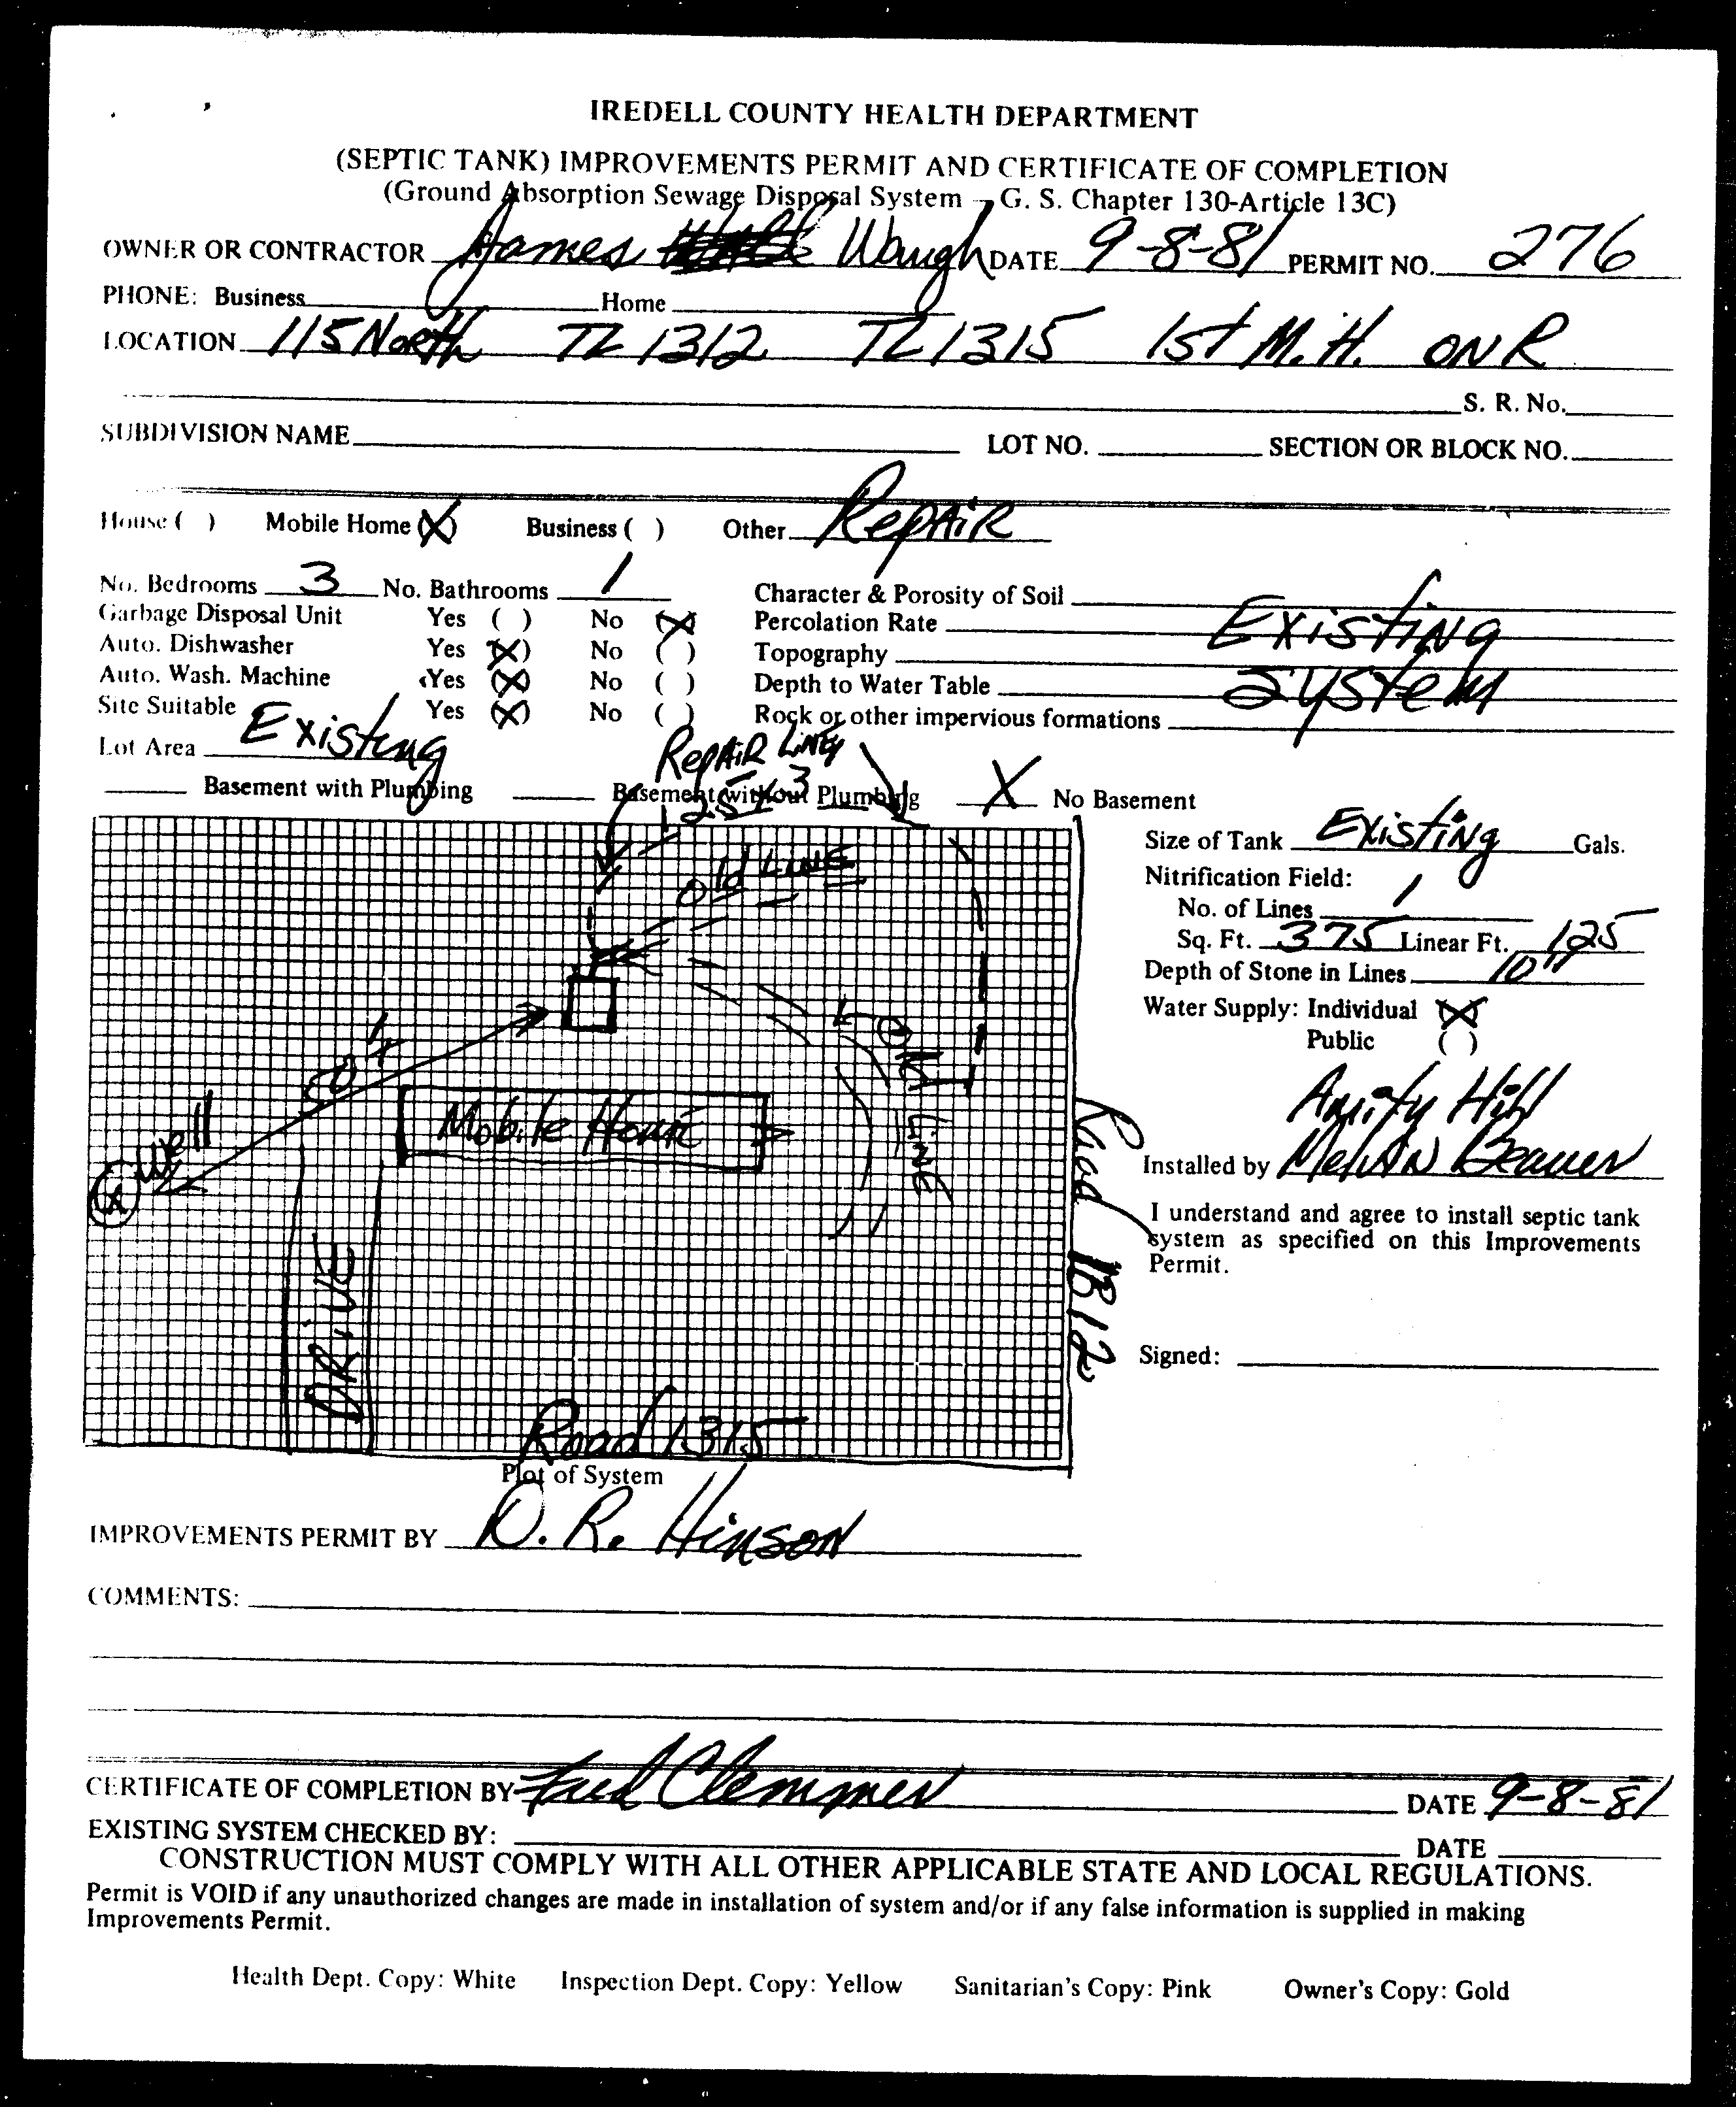 IREDELL COUNTY HEALTH DEPARTMENT
(SEPTIC TANK) IMPROVEMENTS PERMIT AND CERTIFICATE OF COMPLETION
(Ground Absorption Sewage Disposal System - G. S. Chapter 130-Article 13C)
OWNER OR CONTRACTOR James Waugh DATE 9-8-81 PERMIT NO. 276
PHONE: Business Home
LOCATION 115 North TL 1312 TL 1315 1st M.H. ON R
S. R. No.
SUBDIVISION NAME LOT NO. SECTION OR BLOCK NO.
House ( ) Mobile Home (X) Business ( ) Other Repair
No. Bedrooms 3 No. Bathrooms 1 Character & Porosity of Soil
Garbage Disposal Unit Yes ( ) No (X) Percolation Rate Existing
Auto. Dishwasher Yes (X) No ( ) Topography
Auto. Wash. Machine Yes (X) No ( ) Depth to Water Table System
Site Suitable Yes (X) No ( ) Rock or other impervious formations
Lot Area Existing
Repair Line
125 x 3
Basement with Plumbing Basement without Plumbing X No Basement
Size of Tank Existing Gals.
Nitrification Field:
No. of Lines 1
Sq. Ft. 375 Linear Ft. 125
Depth of Stone in Lines 10"
Water Supply: Individual (X)
Public ( )
Old Line
Old Line
50'+
Well
Mobile Home
DRIVE
Road 1312
Road 1315
Plot of System
Amity Hill
Installed by Melvin Beaver
I understand and agree to install septic tank
system as specified on this Improvements
Permit.
Signed:
IMPROVEMENTS PERMIT BY D. R. Hinson
COMMENTS:
CERTIFICATE OF COMPLETION BY Fred Clemmer DATE 9-8-81
EXISTING SYSTEM CHECKED BY: DATE
CONSTRUCTION MUST COMPLY WITH ALL OTHER APPLICABLE STATE AND LOCAL REGULATIONS.
Permit is VOID if any unauthorized changes are made in installation of system and/or if any false information is supplied in making
Improvements Permit.
Health Dept. Copy: White Inspection Dept. Copy: Yellow Sanitarian's Copy: Pink Owner's Copy: Gold